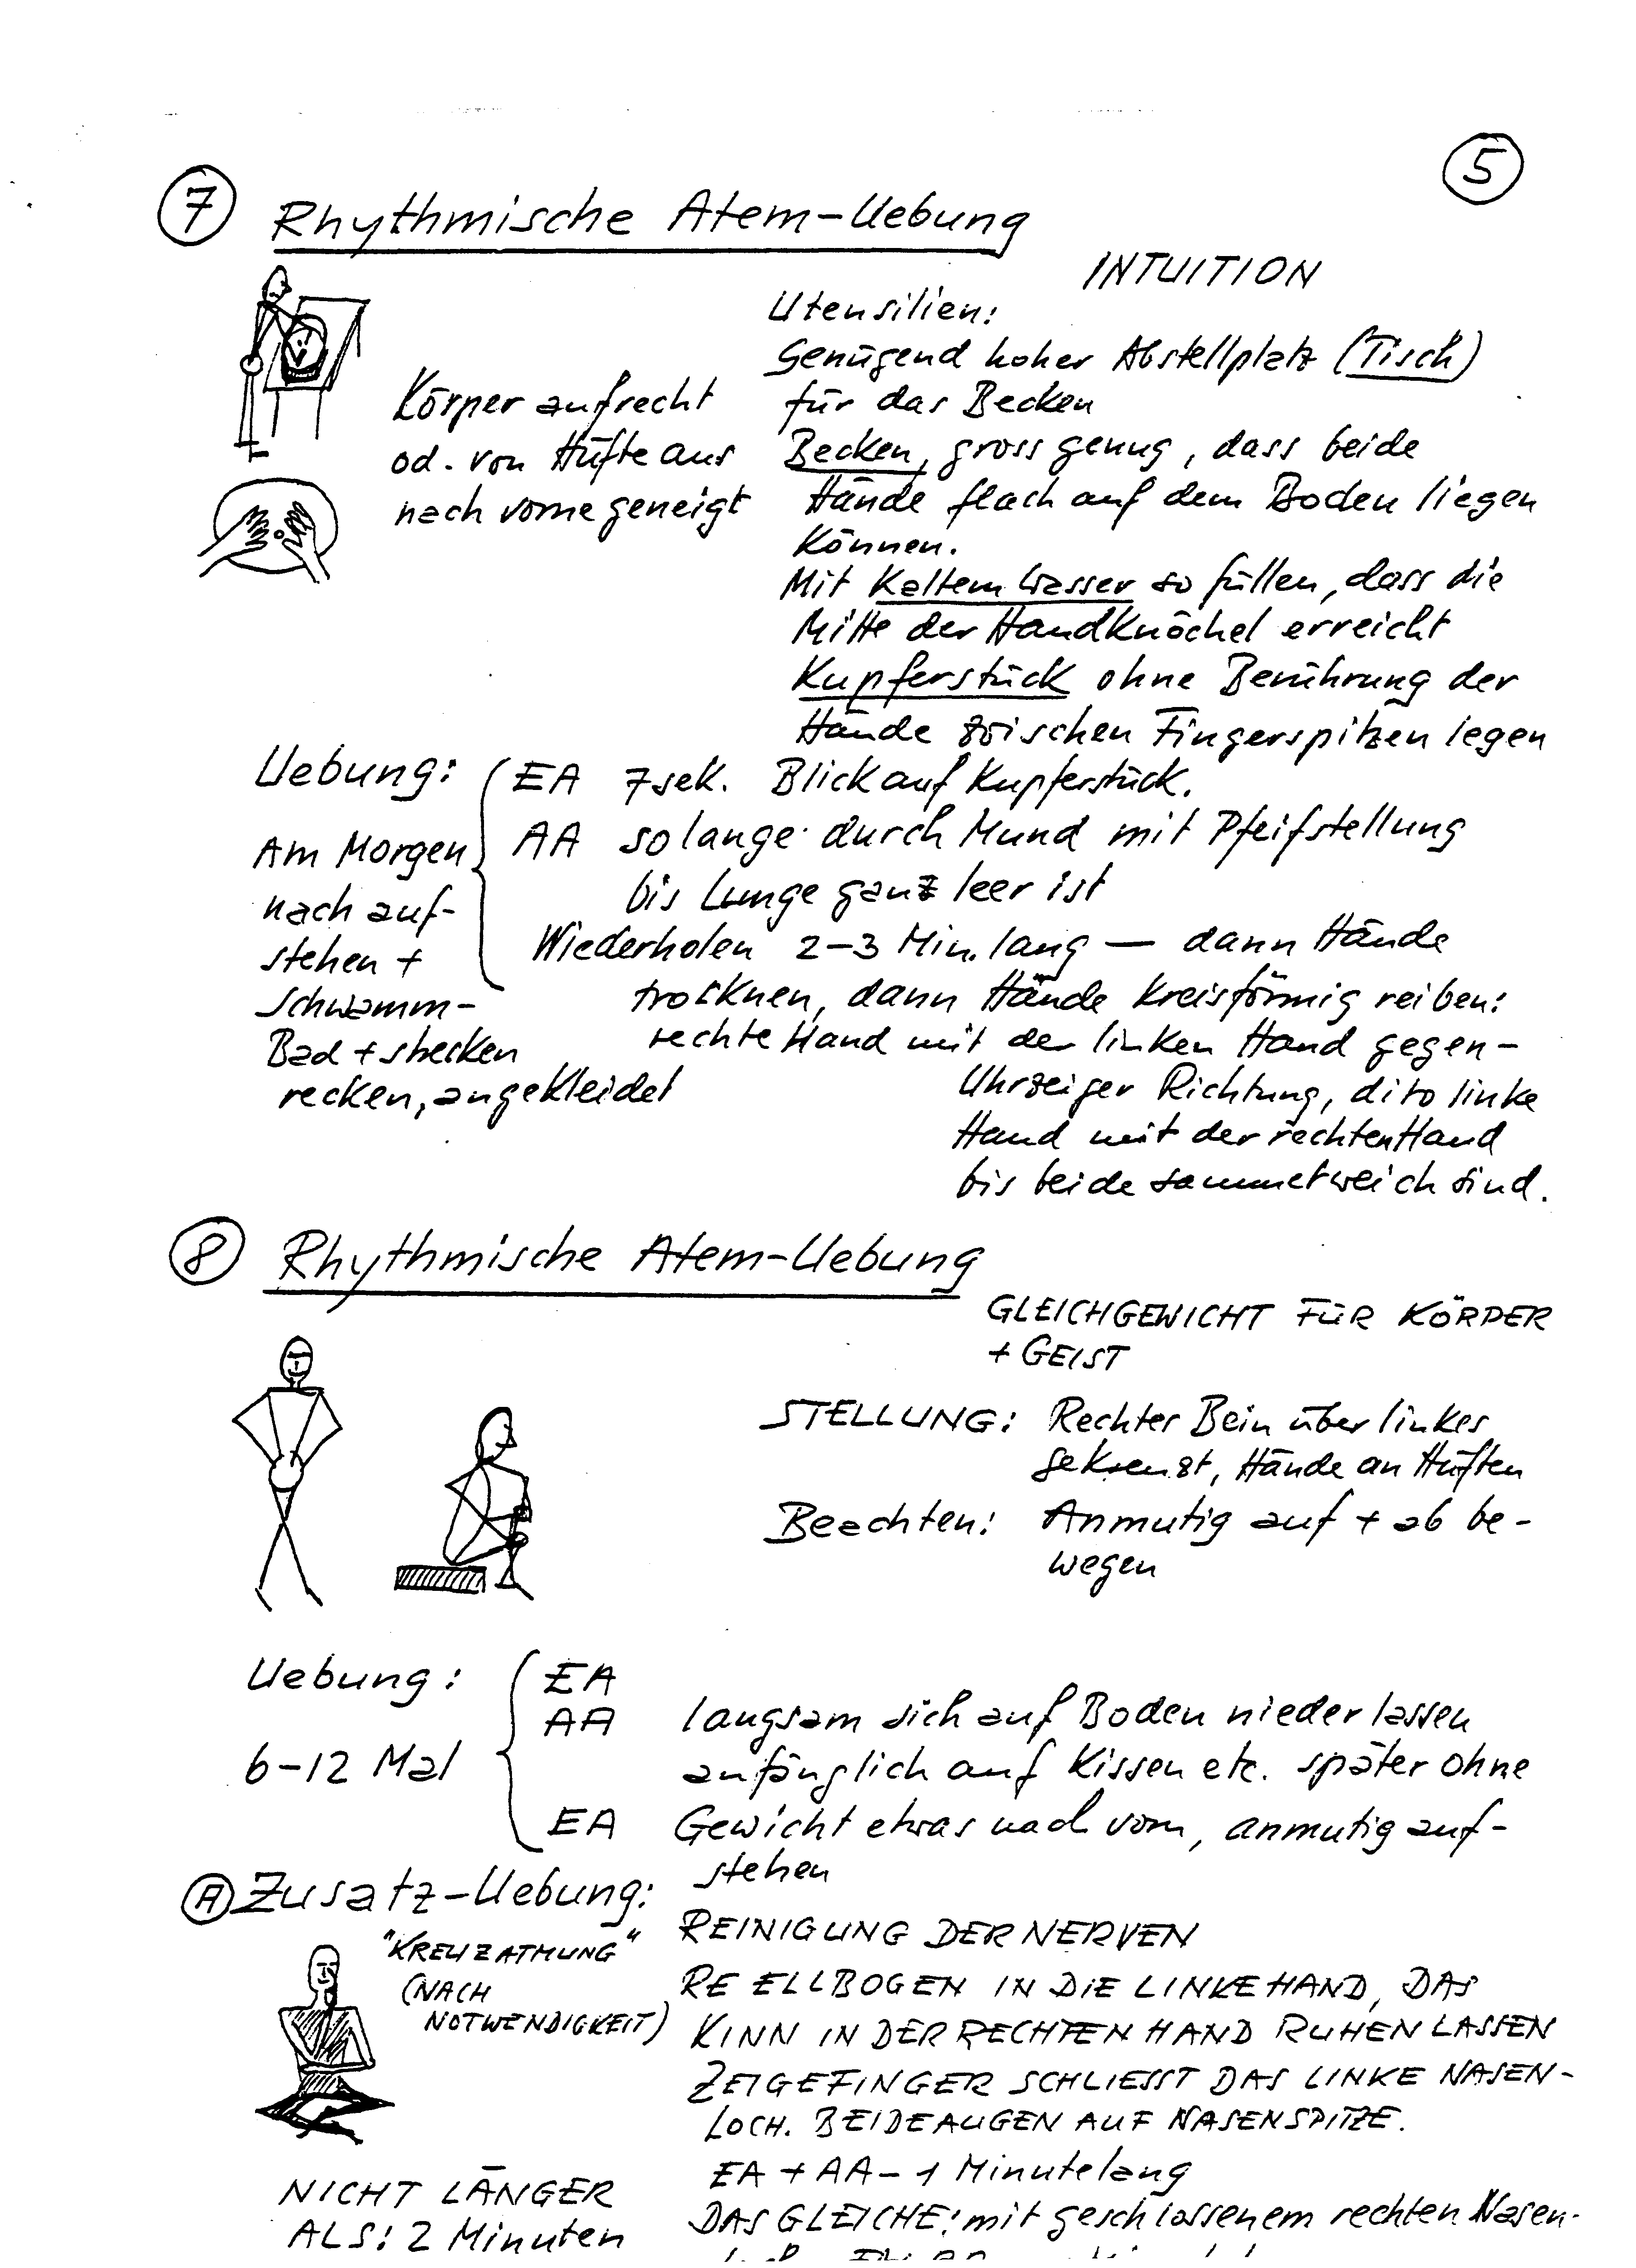 5
7 Rhythmische Atem-Uebung
INTUITION
Körper aufrecht
od. von Hüfte aus
nach vorne geneigt
Utensilien:
Genügend hoher Abstellplatz (Tisch)
für das Becken
Becken, gross genug, dass beide
Hände flach auf dem Boden liegen
können.
Mit kaltem Wasser so füllen, dass die
Mitte der Handknöchel erreicht
Kupferstück ohne Berührung der
Hände zwischen Fingerspitzen legen
Uebung:
Am Morgen
nach auf-
stehen +
Schwamm-
Bad + strecken
recken, angekleidet
EA 7 sek. Blick auf Kupferstück.
AA solange durch Mund mit Pfeifstellung
bis Lunge ganz leer ist
Wiederholen 2-3 Min. lang — dann Hände
trocknen, dann Hände kreisförmig reiben:
rechte Hand mit der linken Hand gegen-
Uhrzeiger Richtung, dito linke
Hand mit der rechten Hand
bis beide sammetweich sind.
8 Rhythmische Atem-Uebung
GLEICHGEWICHT FÜR KÖRPER
+ GEIST
STELLUNG: Rechtes Bein über linkes
gekreuzt, Hände an Hüften
Beachten: Anmutig auf + ab be-
wegen
Uebung:
6-12 Mal
EA
AA langsam sich auf Boden nieder lassen
anfänglich auf Kissen etc. später ohne
EA Gewicht etwas nach vorn, anmutig auf-
stehen
A Zusatz-Uebung:
"KREUZATMUNG"
(NACH
NOTWENDIGKEIT)
REINIGUNG DER NERVEN
RE ELLBOGEN IN DIE LINKE HAND, DAS
KINN IN DER RECHTEN HAND RUHEN LASSEN
ZEIGEFINGER SCHLIESST DAS LINKE NASEN-
LOCH. BEIDE AUGEN AUF NASENSPITZE.
EA + AA - 1 Minutelang
DAS GLEICHE: mit geschlossenem rechten Nasen-
NICHT LÄNGER
ALS: 2 Minuten